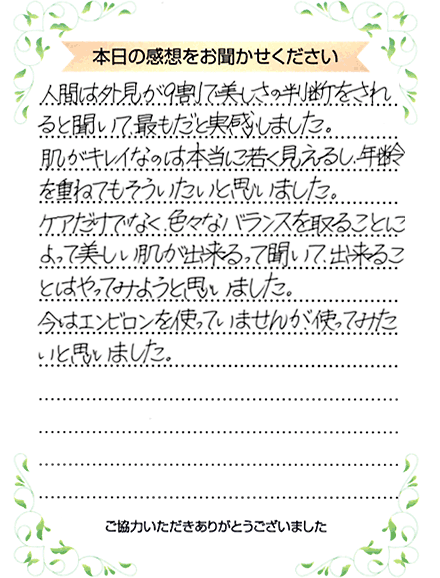 本日の感想をお聞かせください
人間は外見が9割で美しさの判断をされ
ると聞いて、最もだと実感しました。
肌がキレイなのは本当に若く見えるし、年齢
を重ねてもそういたいと思いました。
ケアだけでなく、色々なバランスを取ることに
よって美しい肌が出来るって聞いて、出来るこ
とはやってみようと思いました。
今はエンビロンを使っていませんが、使ってみた
いと思いました。
ご協力いただきありがとうございました